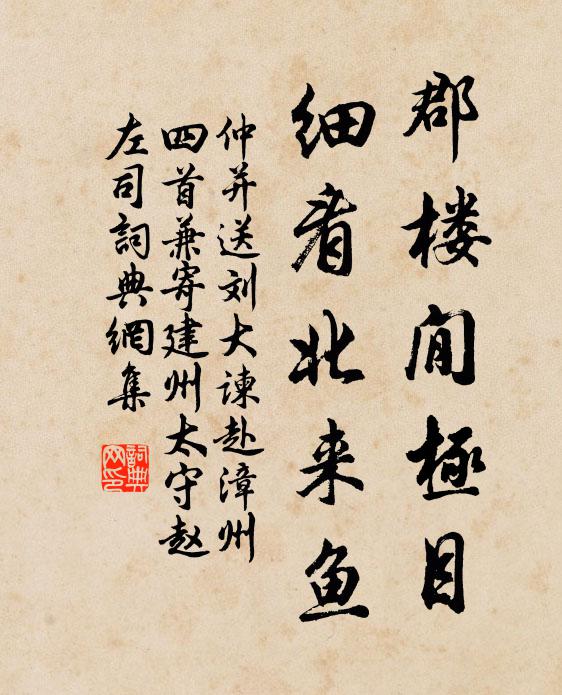 郡楼閒極目
细看北来鱼
仲并送刘大谏赴漳州
四首兼寄建州太守赵
左司詞典網集
詞典
网印